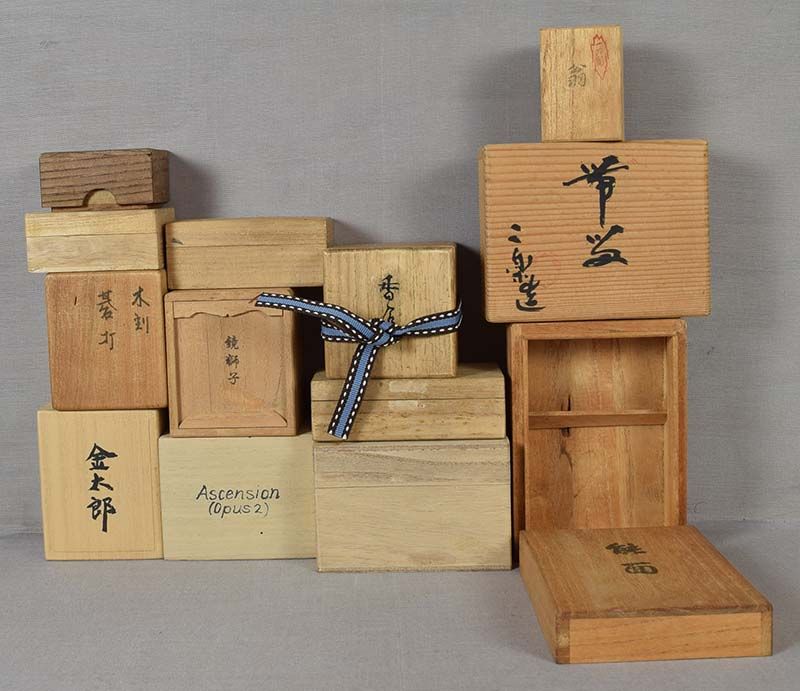 翁
帯留
三楽造
木彫
碁打
鏡獅子
香合
金太郎
Ascension
(Opus 2)